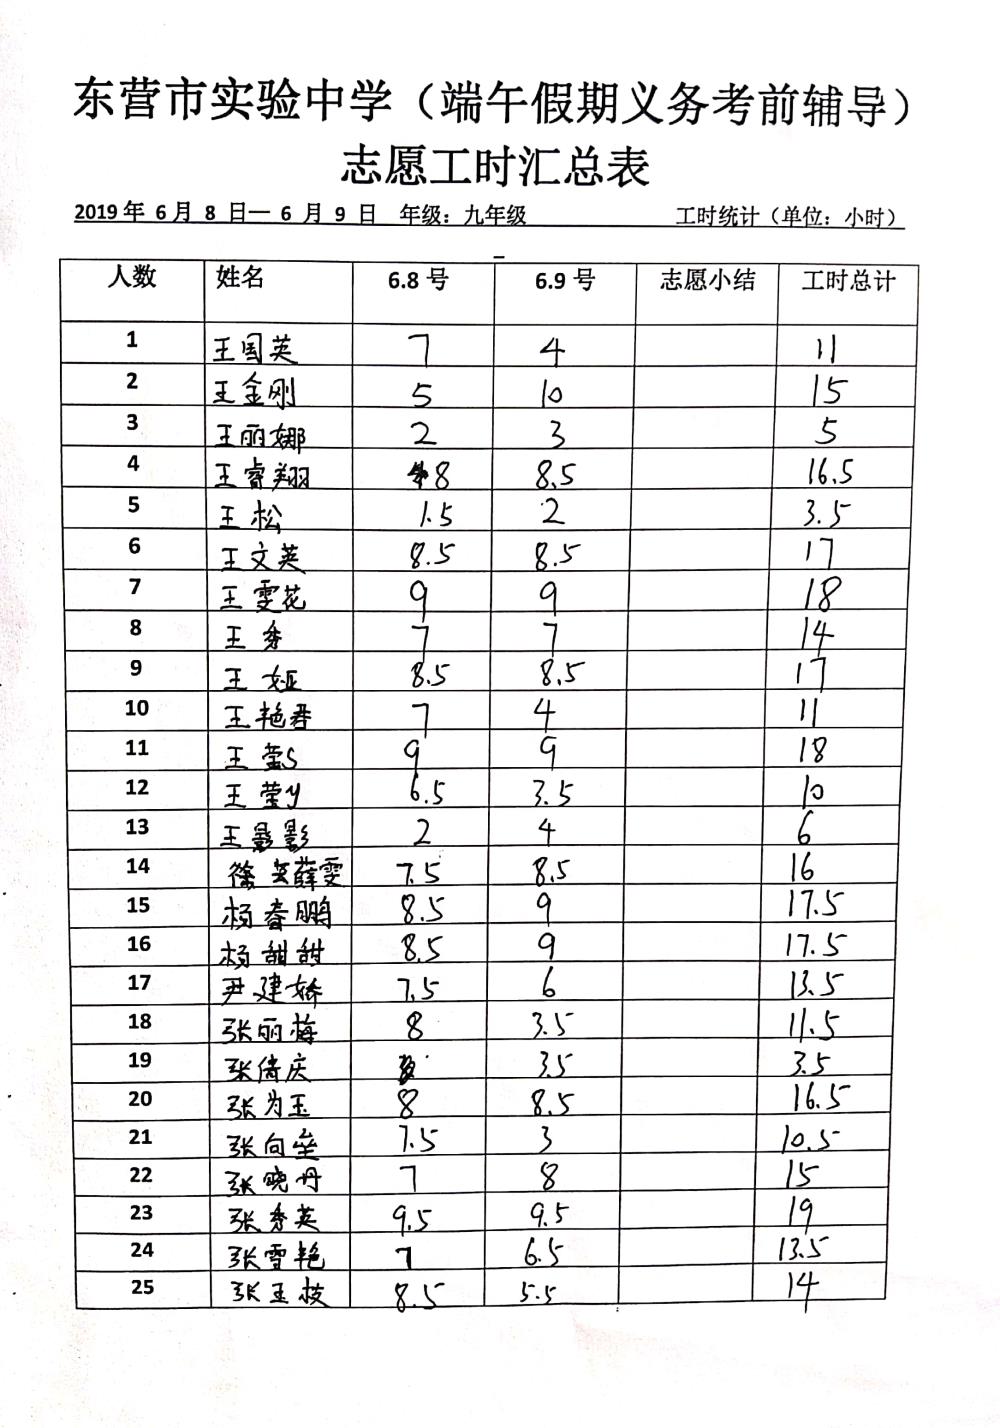 东营市实验中学（端午假期义务考前辅导）
志愿工时汇总表
2019 年 6 月 8 日— 6 月 9 日 年级：九年级 工时统计（单位：小时）
人数 姓名 6.8 号 6.9 号 志愿小结 工时总计
1 王国英 7 4 11
2 王金刚 5 10 15
3 王丽娜 2 3 5
4 王睿翔 8 8.5 16.5
5 王松 1.5 2 3.5
6 王文英 8.5 8.5 17
7 王雯花 9 9 18
8 王秀 7 7 14
9 王娅 8.5 8.5 17
10 王艳君 7 4 11
11 王莹S 9 9 18
12 王莹y 6.5 3.5 10
13 王影影 2 4 6
14 徐薛雯 7.5 8.5 16
15 杨春鹏 8.5 9 17.5
16 杨甜甜 8.5 9 17.5
17 尹建娇 7.5 6 13.5
18 张丽梅 8 3.5 11.5
19 张倩庆 3.5 3.5
20 张为玉 8 8.5 16.5
21 张向垒 7.5 3 10.5
22 张晓丹 7 8 15
23 张秀英 9.5 9.5 19
24 张雪艳 7 6.5 13.5
25 张玉枝 8.5 5.5 14